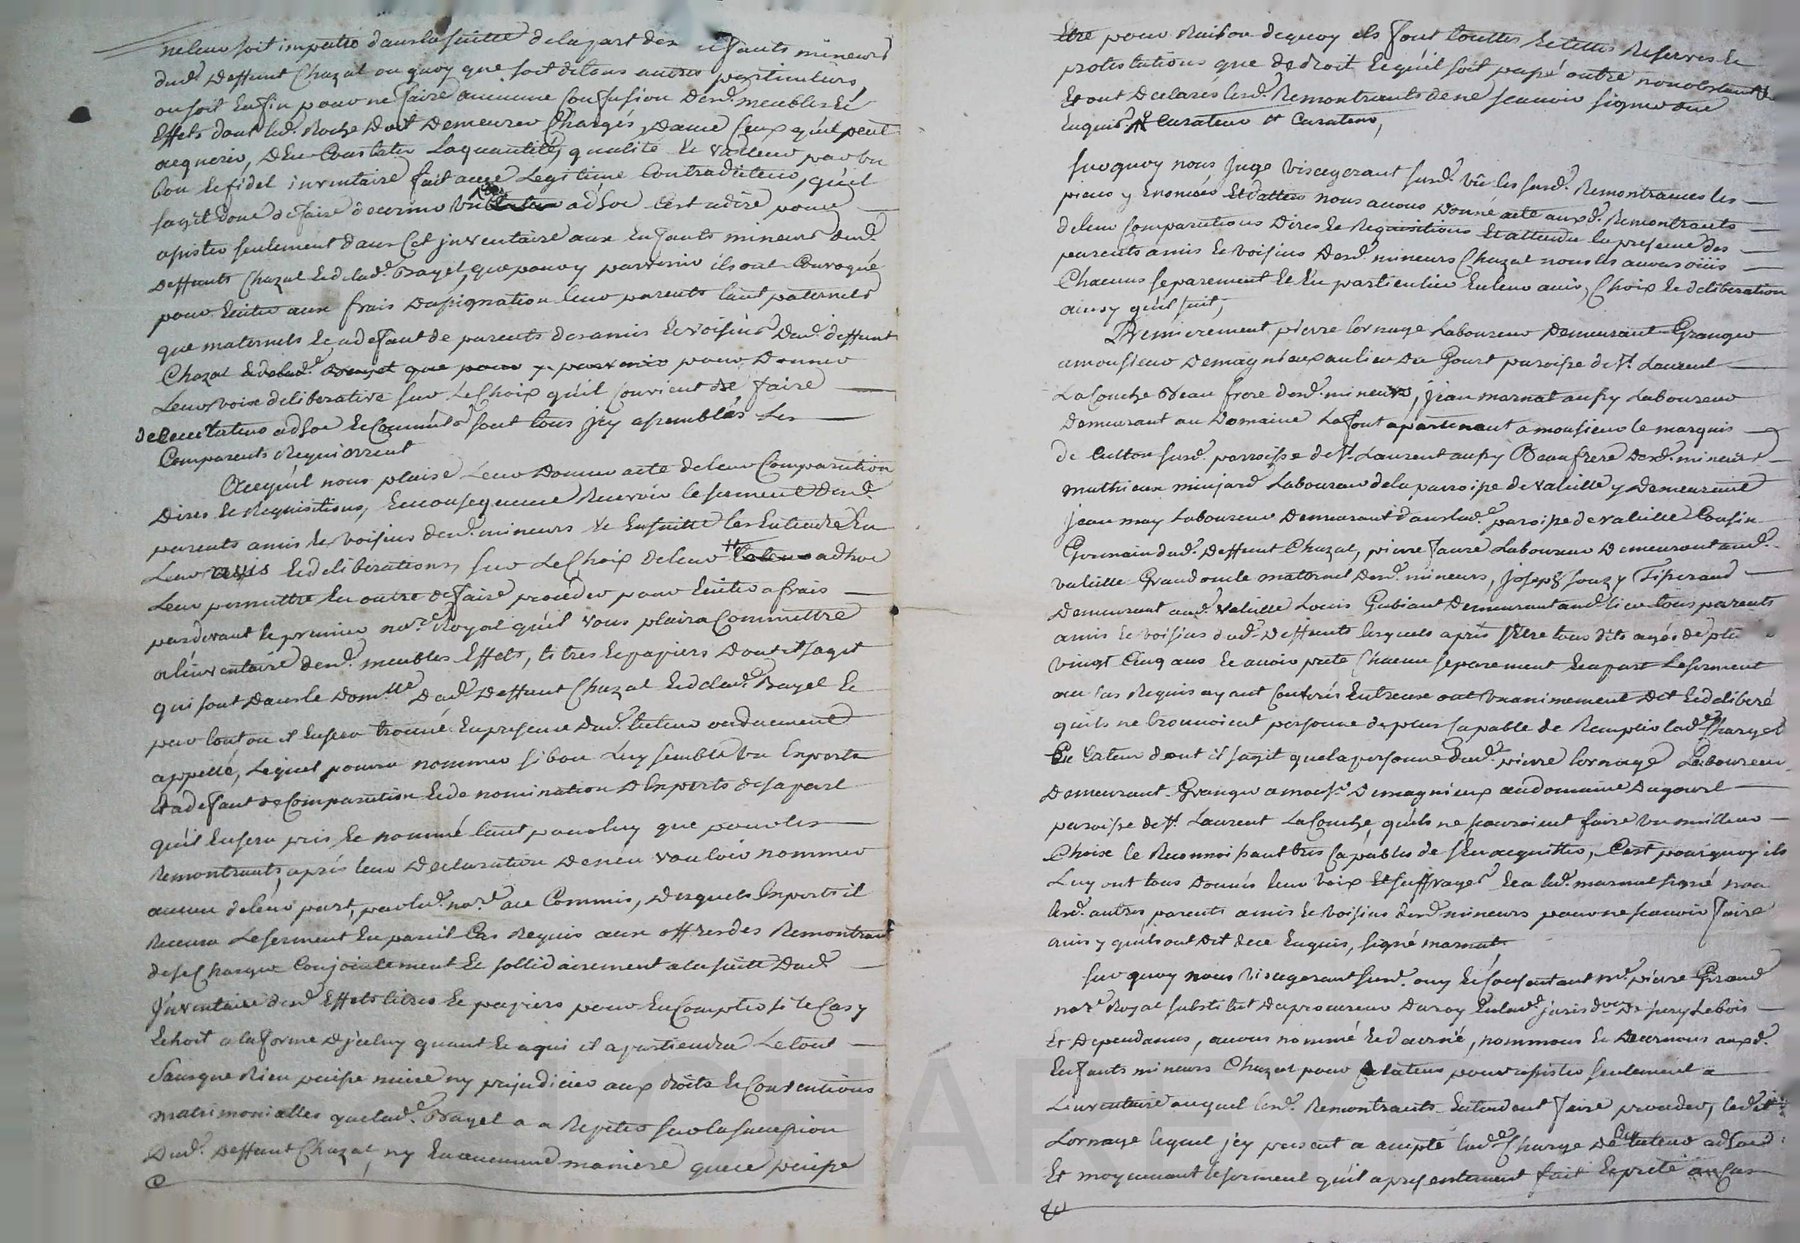 ne leur soit imputtée dans la suitte de la part des enfants mineurs
dud. deffunt Chazal ou quoy que soit de tous autres particuliers
ou soit enfin pour ne faire aucunne confusion desd. meubles et
effets dont led. Roche doit demeurer chargés, dame ceux qu'il peut
acquerir, d'en constater la quantité, qualité et valleur par un
bon et fidel inventaire fait avec legitime contradicteur, qu'il
sagit donc de faire decerner un adhoc c'est adire pour
assister seulement dans cet inventaire aux enfants mineurs dud.
deffunts Chazal et de lad. Bayel, que pour y parvenir ils ont convoqué
pour eviter aux frais d'assignation leur parents tant paternels
que maternels et a defaut de parents des amis et voisins dud. deffunt
Chazal et de lad. Brayet que pour y parvenir pour donner
leur voix deliberative sur le choix qu'il convient de faire
de curateur adhoc et comme ils sont tous jcy assemblés les
comparents requierrent
Acequ'il nous plaise leur donner acte de leur comparution
dires et requisitions, en consequence recevoir le serment desd.
parents amis et voisins desd. mineurs et ensuitte les entendre en
leur avis et deliberations sur le choix de leur tuteur adhoc
leur permettre en outre de faire proceder pour eviter a frais
pardevant le premier nore. Royal qu'il vous plaira commettre
a l'inventaire desd. meubles effets, titres et papiers dont il sagit
qui sont dans le domlle. dud. deffunt Chazal et de lad. Bayel et
par tout ou il en sera trouvé en presence dud. tuteur ou duement
appellé, lequel pourra nommer si bon luy semble un experts
et a defaut de comparution et de nomination d'experts de sa part
qu'il en sera pris et nommé tant pour luy que pour les
Remontrants, aprés leur declaration de n'en vouloir nommer
aucun de leur part, par led. nore. au commis, desquels experts il
recevra le serment en pareil cas requis aux offres des Remontrants
de se charger conjointement et sollidairement a la suitte dud.
jnventaire desd. effets titres et papiers pour en compter si le cas y
echoit a la forme d'jceluy quant et a qui il apartiendra le tout
sans que rien puisse nuire ny prejudicier aux droits et conventions
matrimonialles que lad. Bayel a a repeter sur la succession
dud. deffunt Chazal, ny en aucunne maniere que ce puisse
Etre pour raison dequoy ils font touttes et telles reserves et
protestations que de droit et qu'il soit passé outre nonobstant
Et ont declarés lesd. Remontrants de ne scavoir signer de ce
enquis curateur et curateur,
sur quoy nous juge vicegerant susd. vû les susd. remontrances les
pieces y enoncées et dattées nous avons donné acte auxd. Remontrants
de leur comparutions dires et requisitions et attendu la presence des
parents amis et voisins desd. mineurs Chazal nous les avons oüis
chacuns separement et en particulier en leur avis, choix et deliberation
ainsy qu'il suit,
Premierement, pierre Cornage laboureur demeurant Granger
a monsieur demagnieux au lieu du Gourt paroisse de St. Laurent
la Conche beau frere desd. mineurs, jean marnat aussy laboureur
demeurant au domaine Lafont apartenant a monsieur le marquis
de Culton susd. parroisse de St. Laurent aussy Beau frere desd. mineurs
mathieux minjard laboureur de la parroisse de Valeille y demeurent
jean may laboureur demeurant dans lad. paroisse de Valeille Cousin
Germain dud. deffunt Chazal, pierre faure laboureur demeurant aud.
valeille Grand oncle maternel desd. mineurs, joseph souzy Tisserand
demeurant aud. Valeille Louis Gubiant demeurant aud. lieu tous parents
amis et voisins dud. deffunts lesquels aprés s'etre tous dits agés de plus
vingt cinq ans et avoir preté chacun separement et a part le serment
au cas requis ayant conferés entr'eux ont unanimement dit et deliberé
qu'ils ne trouvoient personne de plus capable de remplir lad. charge
de tuteur dont il sagit que la personne dud. pierre Cornage laboureur
demeurant Granger a monsr. demagnieux au domaine du gourt
paroisse de St. Laurent La Conche, qu'ils ne scauroient faire un meilleur
choix le reconnoissant tres capable de s'en acquitter, C'est pourquoy ils
luy ont tous donnés leur voix et suffrages et a led. marnat signé non
lesd. autres parents amis et voisins desd. mineurs pour ne scavoir faire
ainsy qu'ils ont dit de ce enquis, signé marnat
sur quoy nous vicegerant susd. ouy et ce consentant me. pierre Giraud
nore. Royal substitut du procureur du roy en lad. jurisdon. de sury le bois
et dependances, avons nommé et decerné, nommons et decernons auxd.
enfants mineurs Chazal pour tuteur pour assister seulement a
L'inventaire auquel lesd. Remontrants entendent faire proceder, led.
Cornage lequel jcy present a accepté lad. charge de tuteur adhoc
Et moyennant le serment qu'il a presentement fait et preté au cas